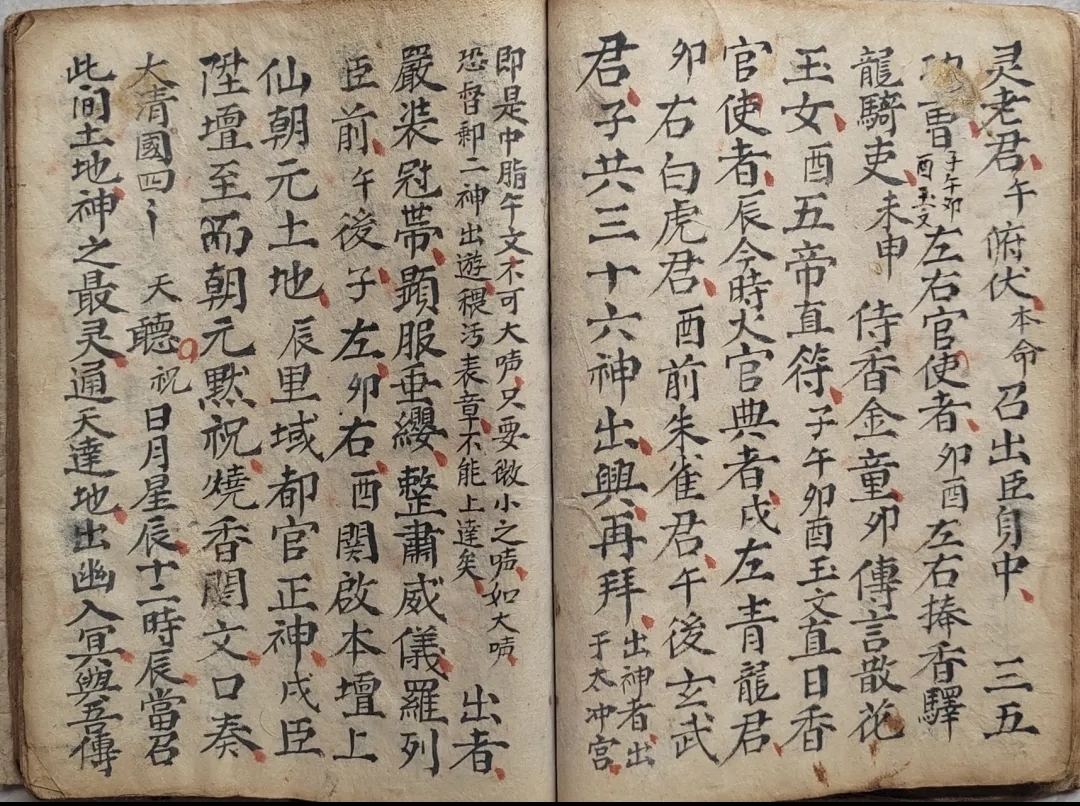 灵老君午俯伏本命召出臣身中三五
功曹子午卯酉玉文左右官使者卯酉左右捧香驛
龍騎吏未申侍香金童卯傳言散花
玉女酉五帝直符子午卯酉玉文直日香
官使者辰今時大官典者戌左青龍君
卯右白虎君酉前朱雀君午後玄武
君子共三十六神出興再拜出神者出于太冲宫
即是中脂午文不可大唪只要微小之唪如大唪
恐督郵二神出遊穢污表章不能上達矣出者
嚴装冠带顯服垂纓整肅威儀羅列
臣前午後子左卯右酉関啟本壇上
仙朝元土地辰里域都官正神戌臣
陞壇至而朝元黙祝燒香関文口奏
大清國四川天聽祝日月星辰十二時辰當召
此间土地神之最灵通天達地出幽入冥與吾傳